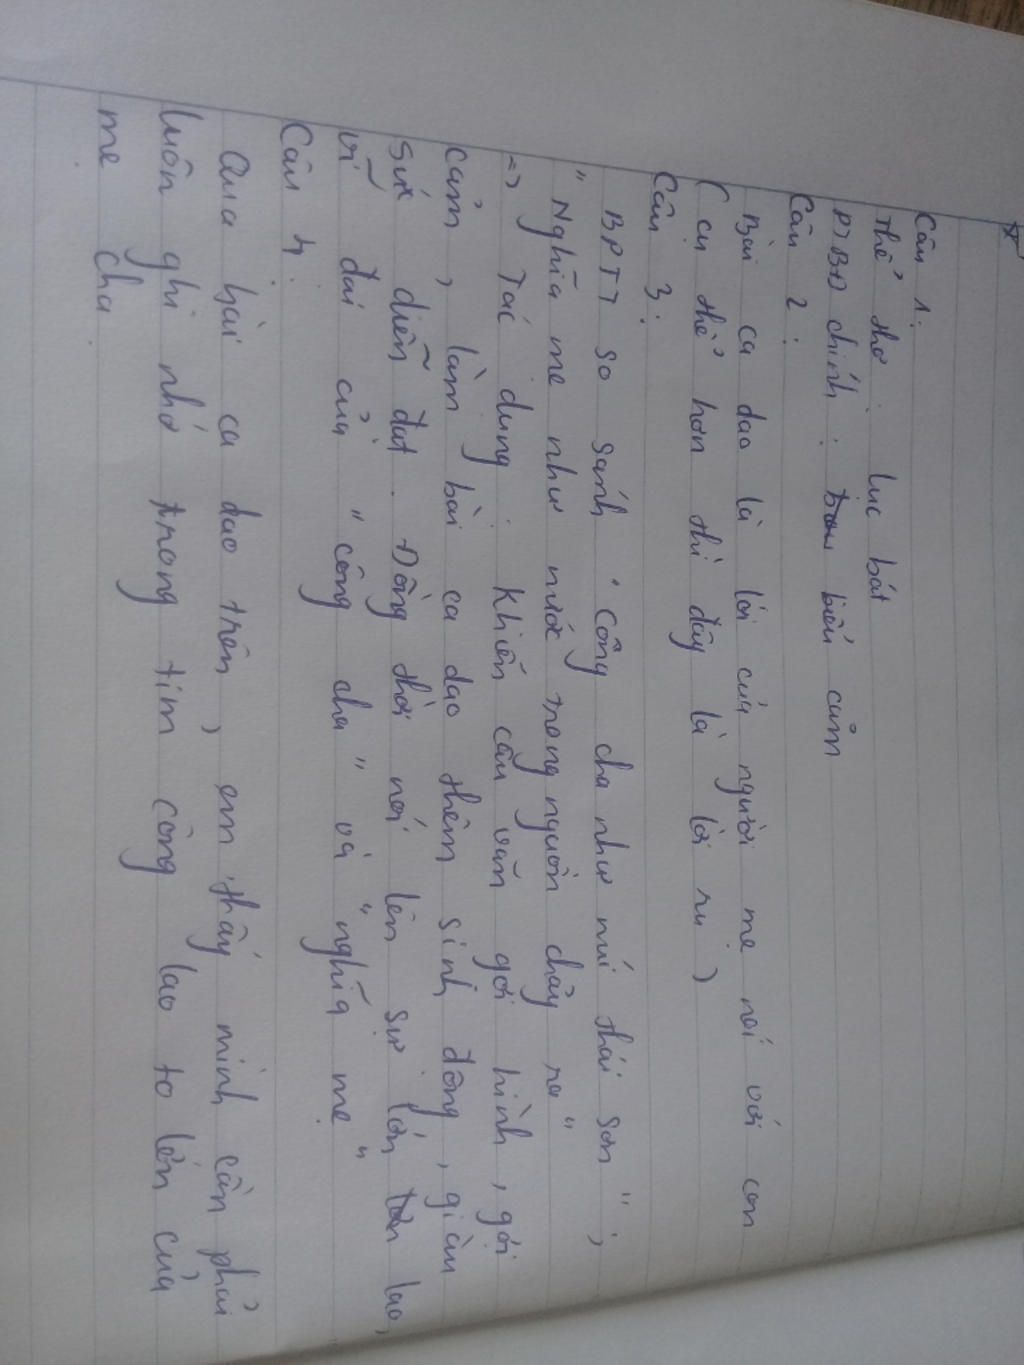 Câu 1:
Thể thơ: lục bát
PTBĐ chính: biểu cảm
Câu 2:
Bài ca dao là lời của người mẹ nói với con
(cụ thể hơn thì đây là lời ru)
Câu 3:
BPTT so sánh "Công cha như núi thái sơn";
"Nghĩa mẹ như nước trong nguồn chảy ra"
=> Tác dụng: Khiến câu văn gợi hình, gợi
cảm, làm bài ca dao thêm sinh động, giàu
sức diễn đạt. Đồng thời nói lên sự lớn lao,
vĩ đại của "công cha" và "nghĩa mẹ"
Câu 4:
Qua bài ca dao trên, em thấy mình cần phải
luôn ghi nhớ trong tim công lao to lớn của
mẹ cha.